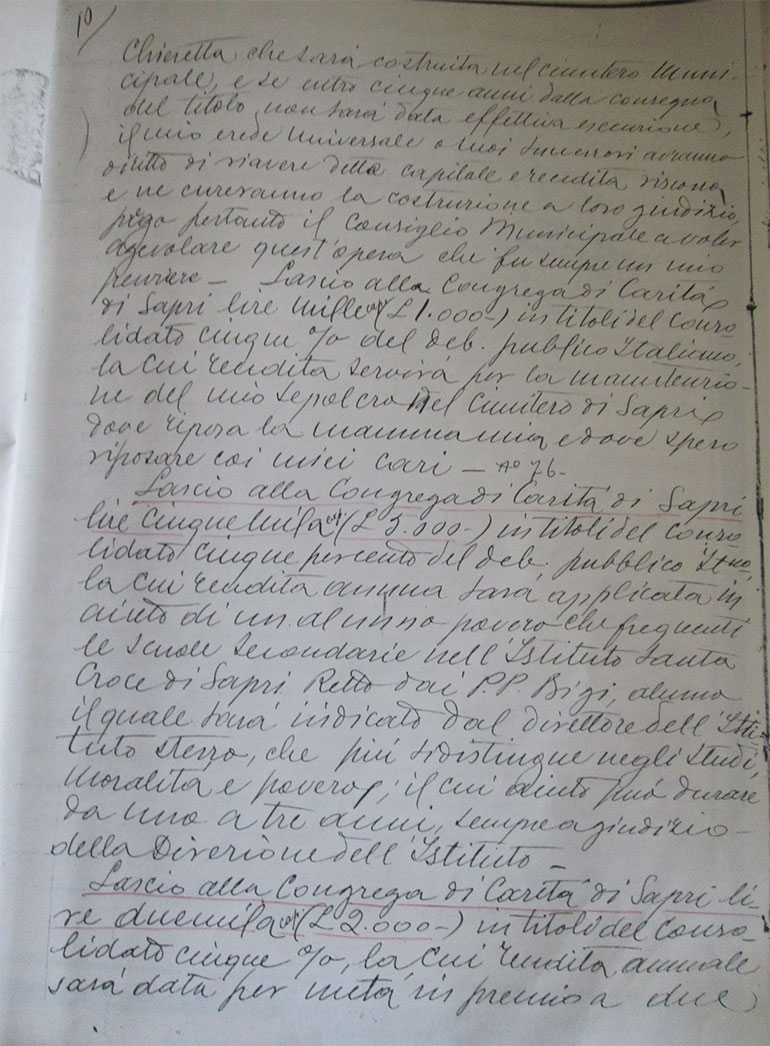 10
Chiesetta che sarà costruita nel cimitero Muni-
cipale, e se entro cinque anni dalla consegna
del titolo non sarà data effettiva esecuzione,
il mio erede Universale o suoi Successori avranno
diritto di riavere detto capitale e rendita
e ne cureranno la costruzione a loro giudizio,
prego pertanto il Consiglio Municipale a voler
agevolare quest'opera che fu sempre un mio
pensiero - Lascio alla Congrega di Carità
di Sapri lire Mille (£ 1.000-) in titoli del Conso-
lidato cinque % del deb. pubblico Italiano,
la cui rendita servirà per la manutenzio-
ne del mio sepolcro Nel Cimitero di Sapri
dove riposa la mamma mia, e dove spero
riposare coi miei cari - No 76-
Lascio alla Congrega di Carità di Sapri
lire Cinque Mila (£ 5.000-) in titoli del Conso-
lidato Cinque percento del deb. pubblico Itno,
la cui rendita annua sarà applicata in
aiuto di un alunno povero che frequenti
le scuole secondarie nell'Istituto Santa
Croce di Sapri Retto dai P.P. Bigi, alunno
il quale sarà indicato dal direttore dell'Isti-
tuto stesso, che più si distingue negli studi,
moralità e povero; il cui aiuto può durare
da uno a tre anni, sempre a giudizio
della Direzione dell'Istituto -
Lascio alla Congrega di Carità di Sapri li-
re duemila (£ 2.000-) in titoli del Conso-
lidato cinque %, la cui rendita annuale
sarà data per metà in premio a due